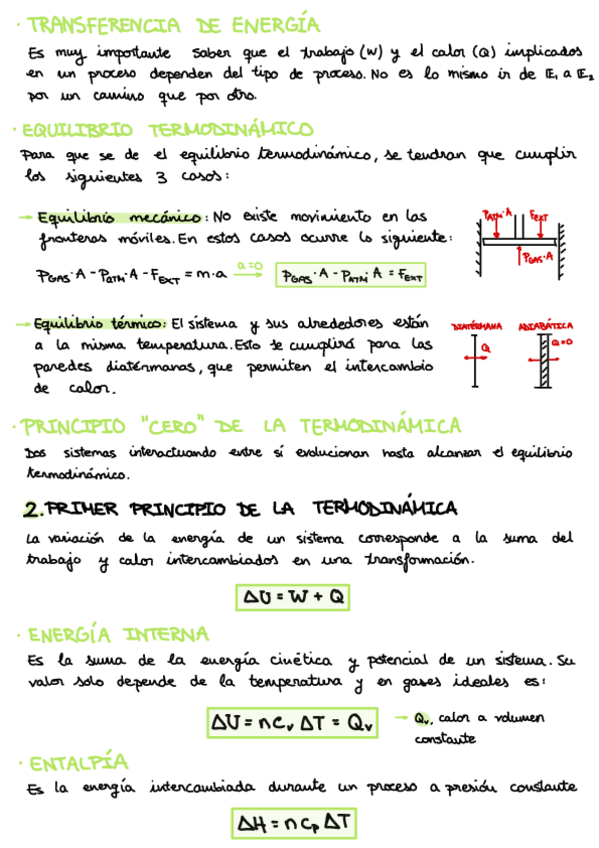 · TRANSFERENCIA DE ENERGÍA
Es muy importante saber que el trabajo (W) y el calor (Q) implicados
en un proceso dependen del tipo de proceso. No es lo mismo ir de E₁ a E₂
por un camino que por otro.
· EQUILIBRIO TERMODINÁMICO
Para que se de el equilibrio termodinámico, se tendran que cumplir
los siguientes 3 casos:
→ Equilibrio mecánico: No existe movimiento en las
fronteras móviles. En estos casos ocurre lo siguiente:
P_GAS · A - P_ATM · A - F_EXT = m·a →(a=0) P_GAS · A - P_ATM · A = F_EXT
P_ATM · A F_EXT
P_GAS · A
→ Equilibrio térmico: El sistema y sus alrededores están
a la misma temperatura. Esto se cumplirá para las
paredes diatérmanas, que permiten el intercambio
de calor.
DIATÉRMANA ADIABÁTICA
Q Q=0
· PRINCIPIO "CERO" DE LA TERMODINÁMICA
Dos sistemas interactuando entre sí evolucionan hasta alcanzar el equilibrio
termodinámico.
2. PRIMER PRINCIPIO DE LA TERMODINÁMICA
La variación de la energía de un sistema corresponde a la suma del
trabajo y calor intercambiados en una transformación.
ΔU = W + Q
· ENERGÍA INTERNA
Es la suma de la energía cinética y potencial de un sistema. Su
valor solo depende de la temperatura y en gases ideales es:
ΔU = n c_v ΔT = Q_v → Q_v, calor a volumen
constante
· ENTALPÍA
Es la energía intercambiada durante un proceso a presión constante
ΔH = n c_p ΔT